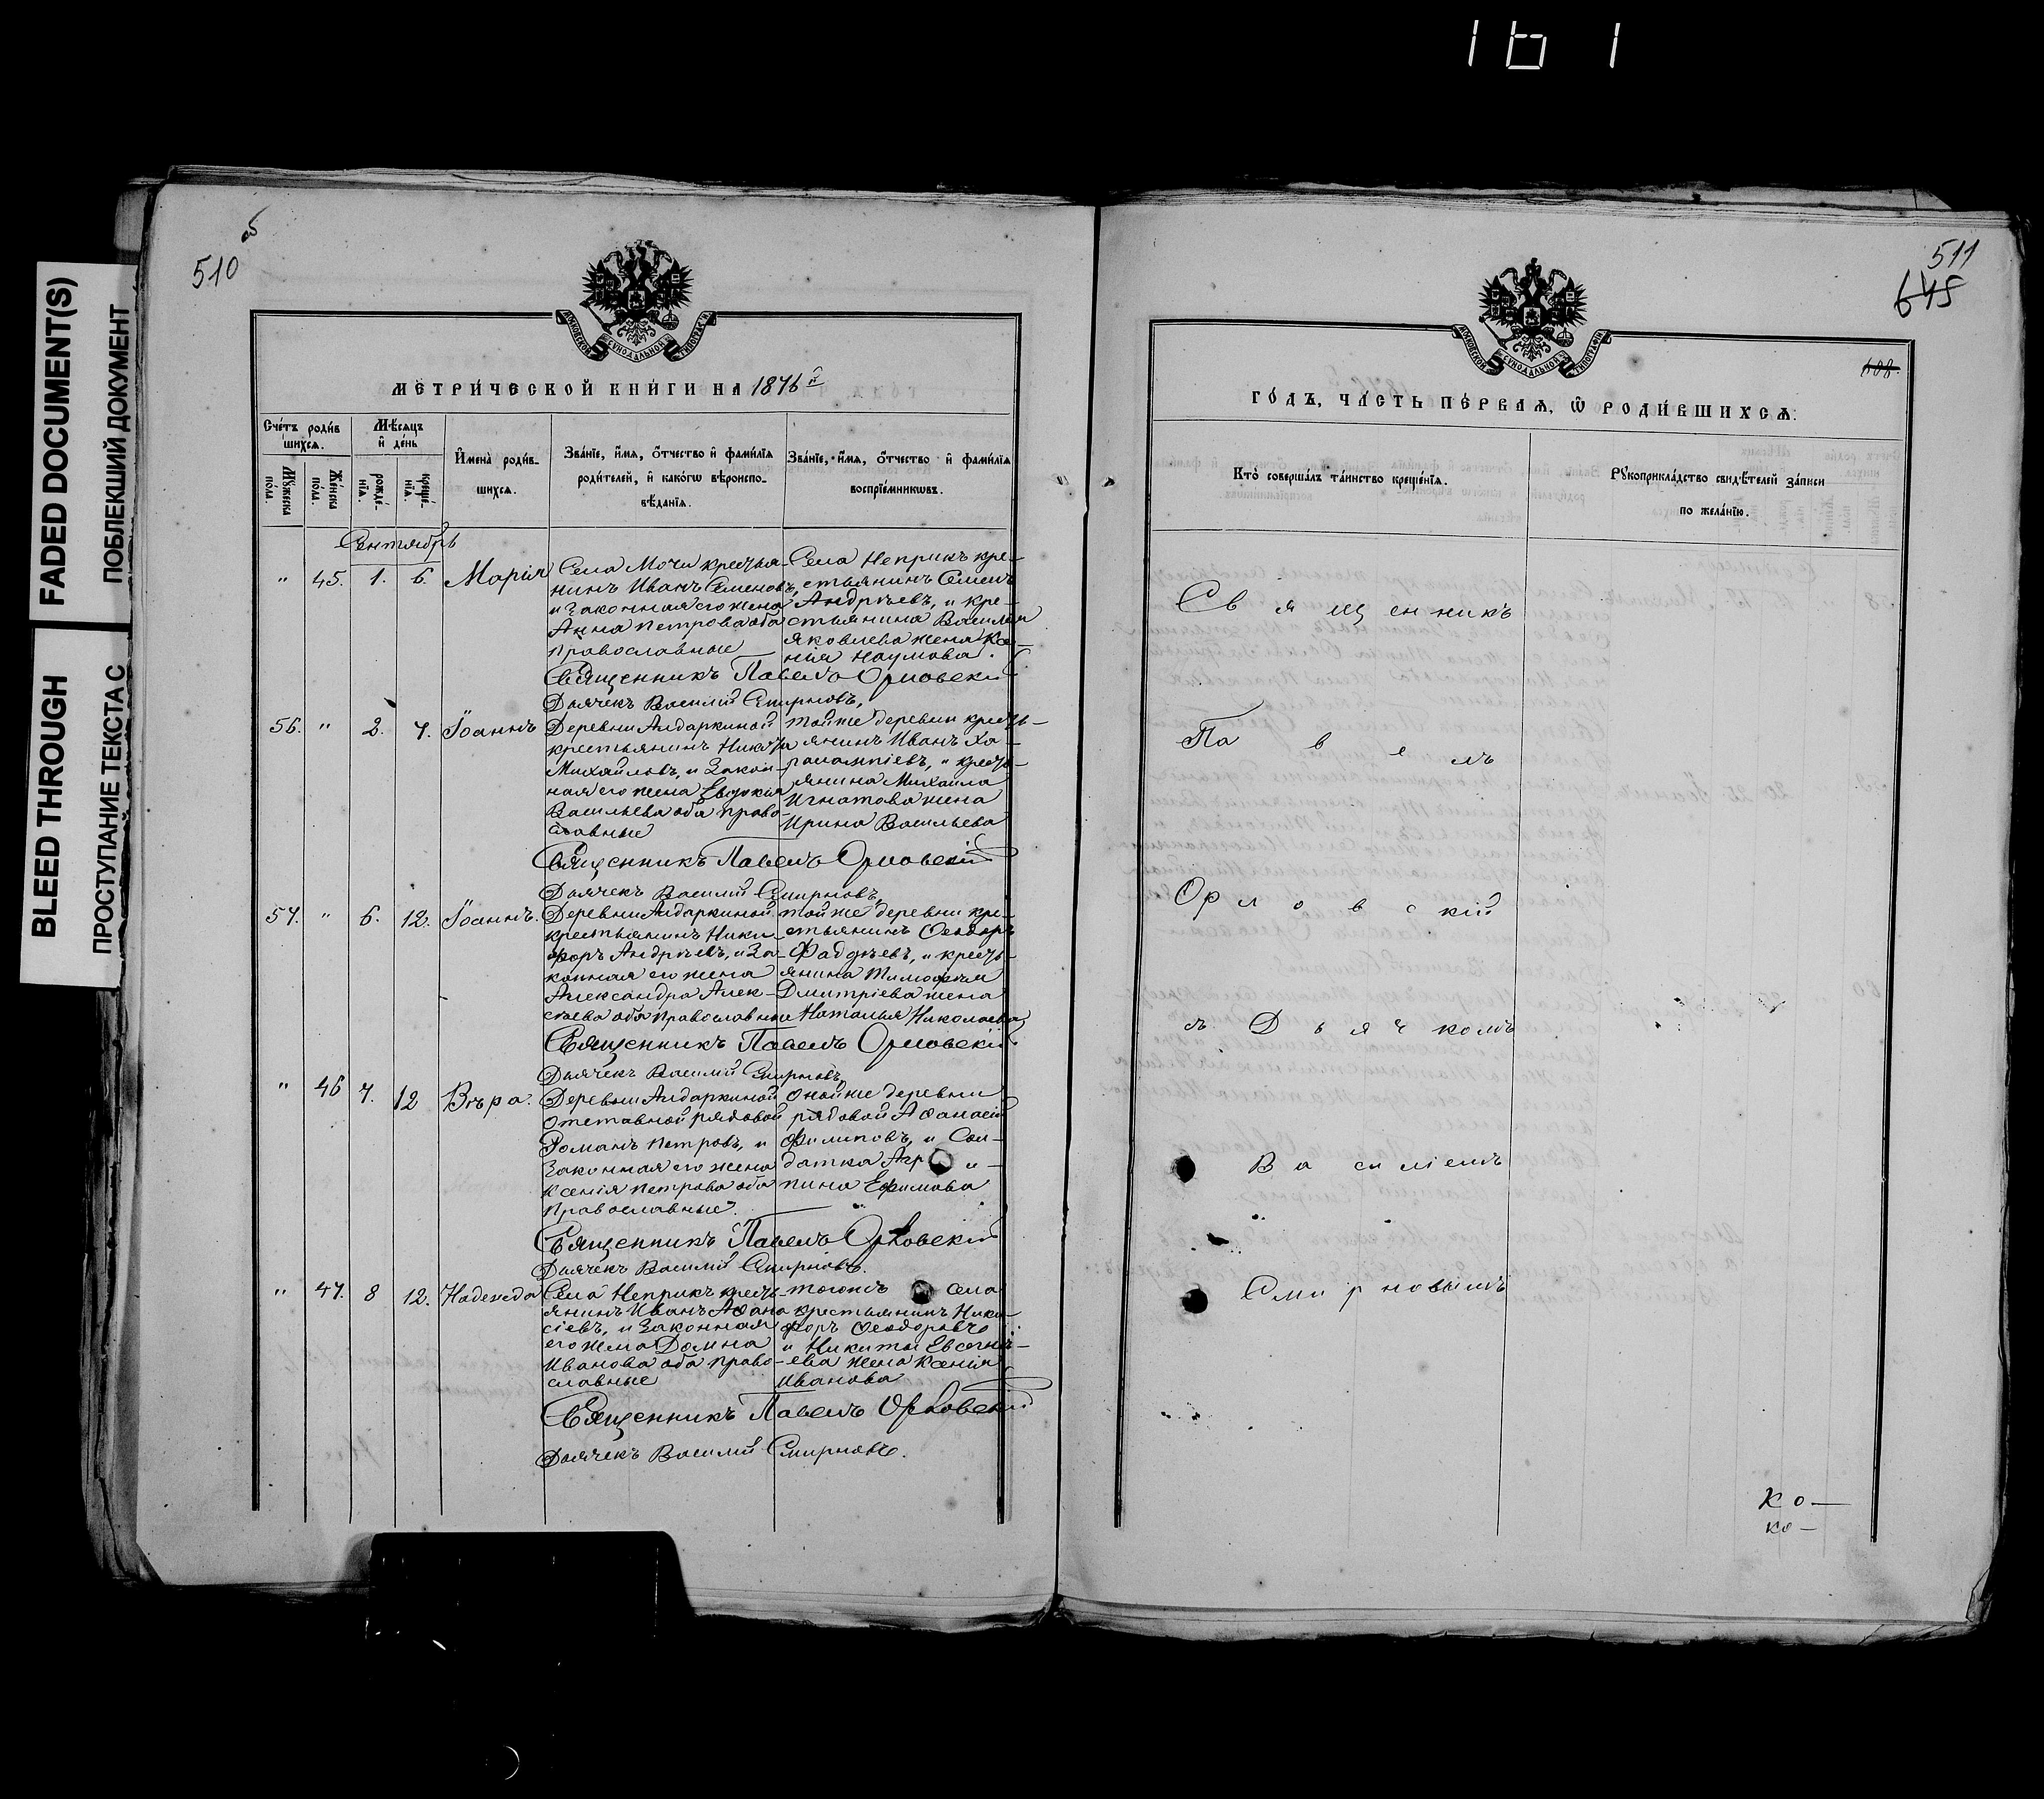 161
BLEED THROUGH
FADED DOCUMENT(S)
ПРОСТУПАНИЕ ТЕКСТА С
ПОБЛЕКШИЙ ДОКУМЕНТ
об
510
МОСКОВСКОЙ СѴНОДАЛЬНОЙ ТИПОГРАФІИ
МЕТРИ́ЧЕСКОЙ КНИ́ГИ НА 1876 й
Сче́тъ роди́в
шихсѧ.
Мѣ́сѧцъ
и҆ де́нь
И҆мена̀ роди́в-
шихсѧ.
Зва́нїе, и҆́мѧ, ѻ҆́тчество и҆ фами́лїѧ
роди́телей, и҆ какѡ́гѡ вѣроиспо-
вѣ́данїѧ.
Зва́нїе, и҆́мѧ, ѻ҆́тчество и҆ фами́лїѧ
воспрїе́мникѡвъ.
Мꙋ́жеска
по́ла.
Же́нска
по́ла.
рожде́-
нїѧ.
креще́-
нїѧ.
Сентябрь
" 45. 1. 6. Марія
Села Мочи крестья-
нинъ Иванъ Семеновъ,
и законная его жена
Анна Петрова оба
православные
Села Неприкъ кре-
стьянинъ Семенъ
Андрѣевъ, и кре-
стьянина Василія
Яковлева жена Ксе-
нія Наумова.
Священникъ Павелъ Орловскій
Дьячекъ Василій Смирновъ.
56. " 2. 7. Іоаннъ
Деревни Алдаркиной
крестьянинъ Никита
Михайловъ, и закон-
ная его жена Евдокія
Васильева оба право-
славные
тойже деревни кресть-
янинъ Иванъ Ха-
рлампіевъ, и кресть-
янина Михаила
Игнатова жена
Ирина Васильева
Священникъ Павелъ Орловскій
Дьячекъ Василій Смирновъ.
57. " 6. 12. Іоаннъ.
Деревни Алдаркиной
крестьянинъ Ники-
форъ Андрѣевъ, и за-
конная его жена
Александра Алек-
сѣева оба православные
тойже деревни кре-
стьянинъ Ѳеодоръ
Фаддѣевъ, и кресть-
янина Тимофѣя
Дмитріева жена
Наталья Николаева
Священникъ Павелъ Орловскій
Дьячекъ Василій Смирновъ
" 46 7. 12 Вѣра.
Деревни Алдаркиной
отставной рядовой
Романъ Петровъ, и
законная его жена
Ксенія Петрова оба
православные.
онойже деревни
рядовой Аѳанасій
Филиповъ, и Сол-
датка Агр и-
пина Ефимова
Священникъ Павелъ Орловскій
Дьячекъ Василій Смирновъ.
" 47. 8 12. Надежда
Села Неприкъ кресть-
янинъ Иванъ Аѳана
сіевъ, и законная
его жена Домна
Иванова оба право-
славные
тогожъ села
крестьянинъ Ники-
форъ Ѳеодоровъ
и Никиты Евсегнѣ-
ева жена Ксенія
Иванова
Священникъ Павелъ Орловскій
Дьячекъ Василій Смирновъ.
511
645
608.
МОСКОВСКОЙ СѴНОДАЛЬНОЙ ТИПОГРАФІИ
ГО́ДЪ, ЧА́СТЬ ПЕ́РВАѦ, Ѽ РОДИ́ВШИХСѦ.
Кто̀ соверша́лъ та́инство креще́нїѧ.
Рꙋкоприкла́дство свидѣ́телей за́писи
по жела́нїю.
Священникъ
Павелъ
Орловскій
съ Дьячкомъ
Василіемъ
Смирновымъ
Ко—
ко—